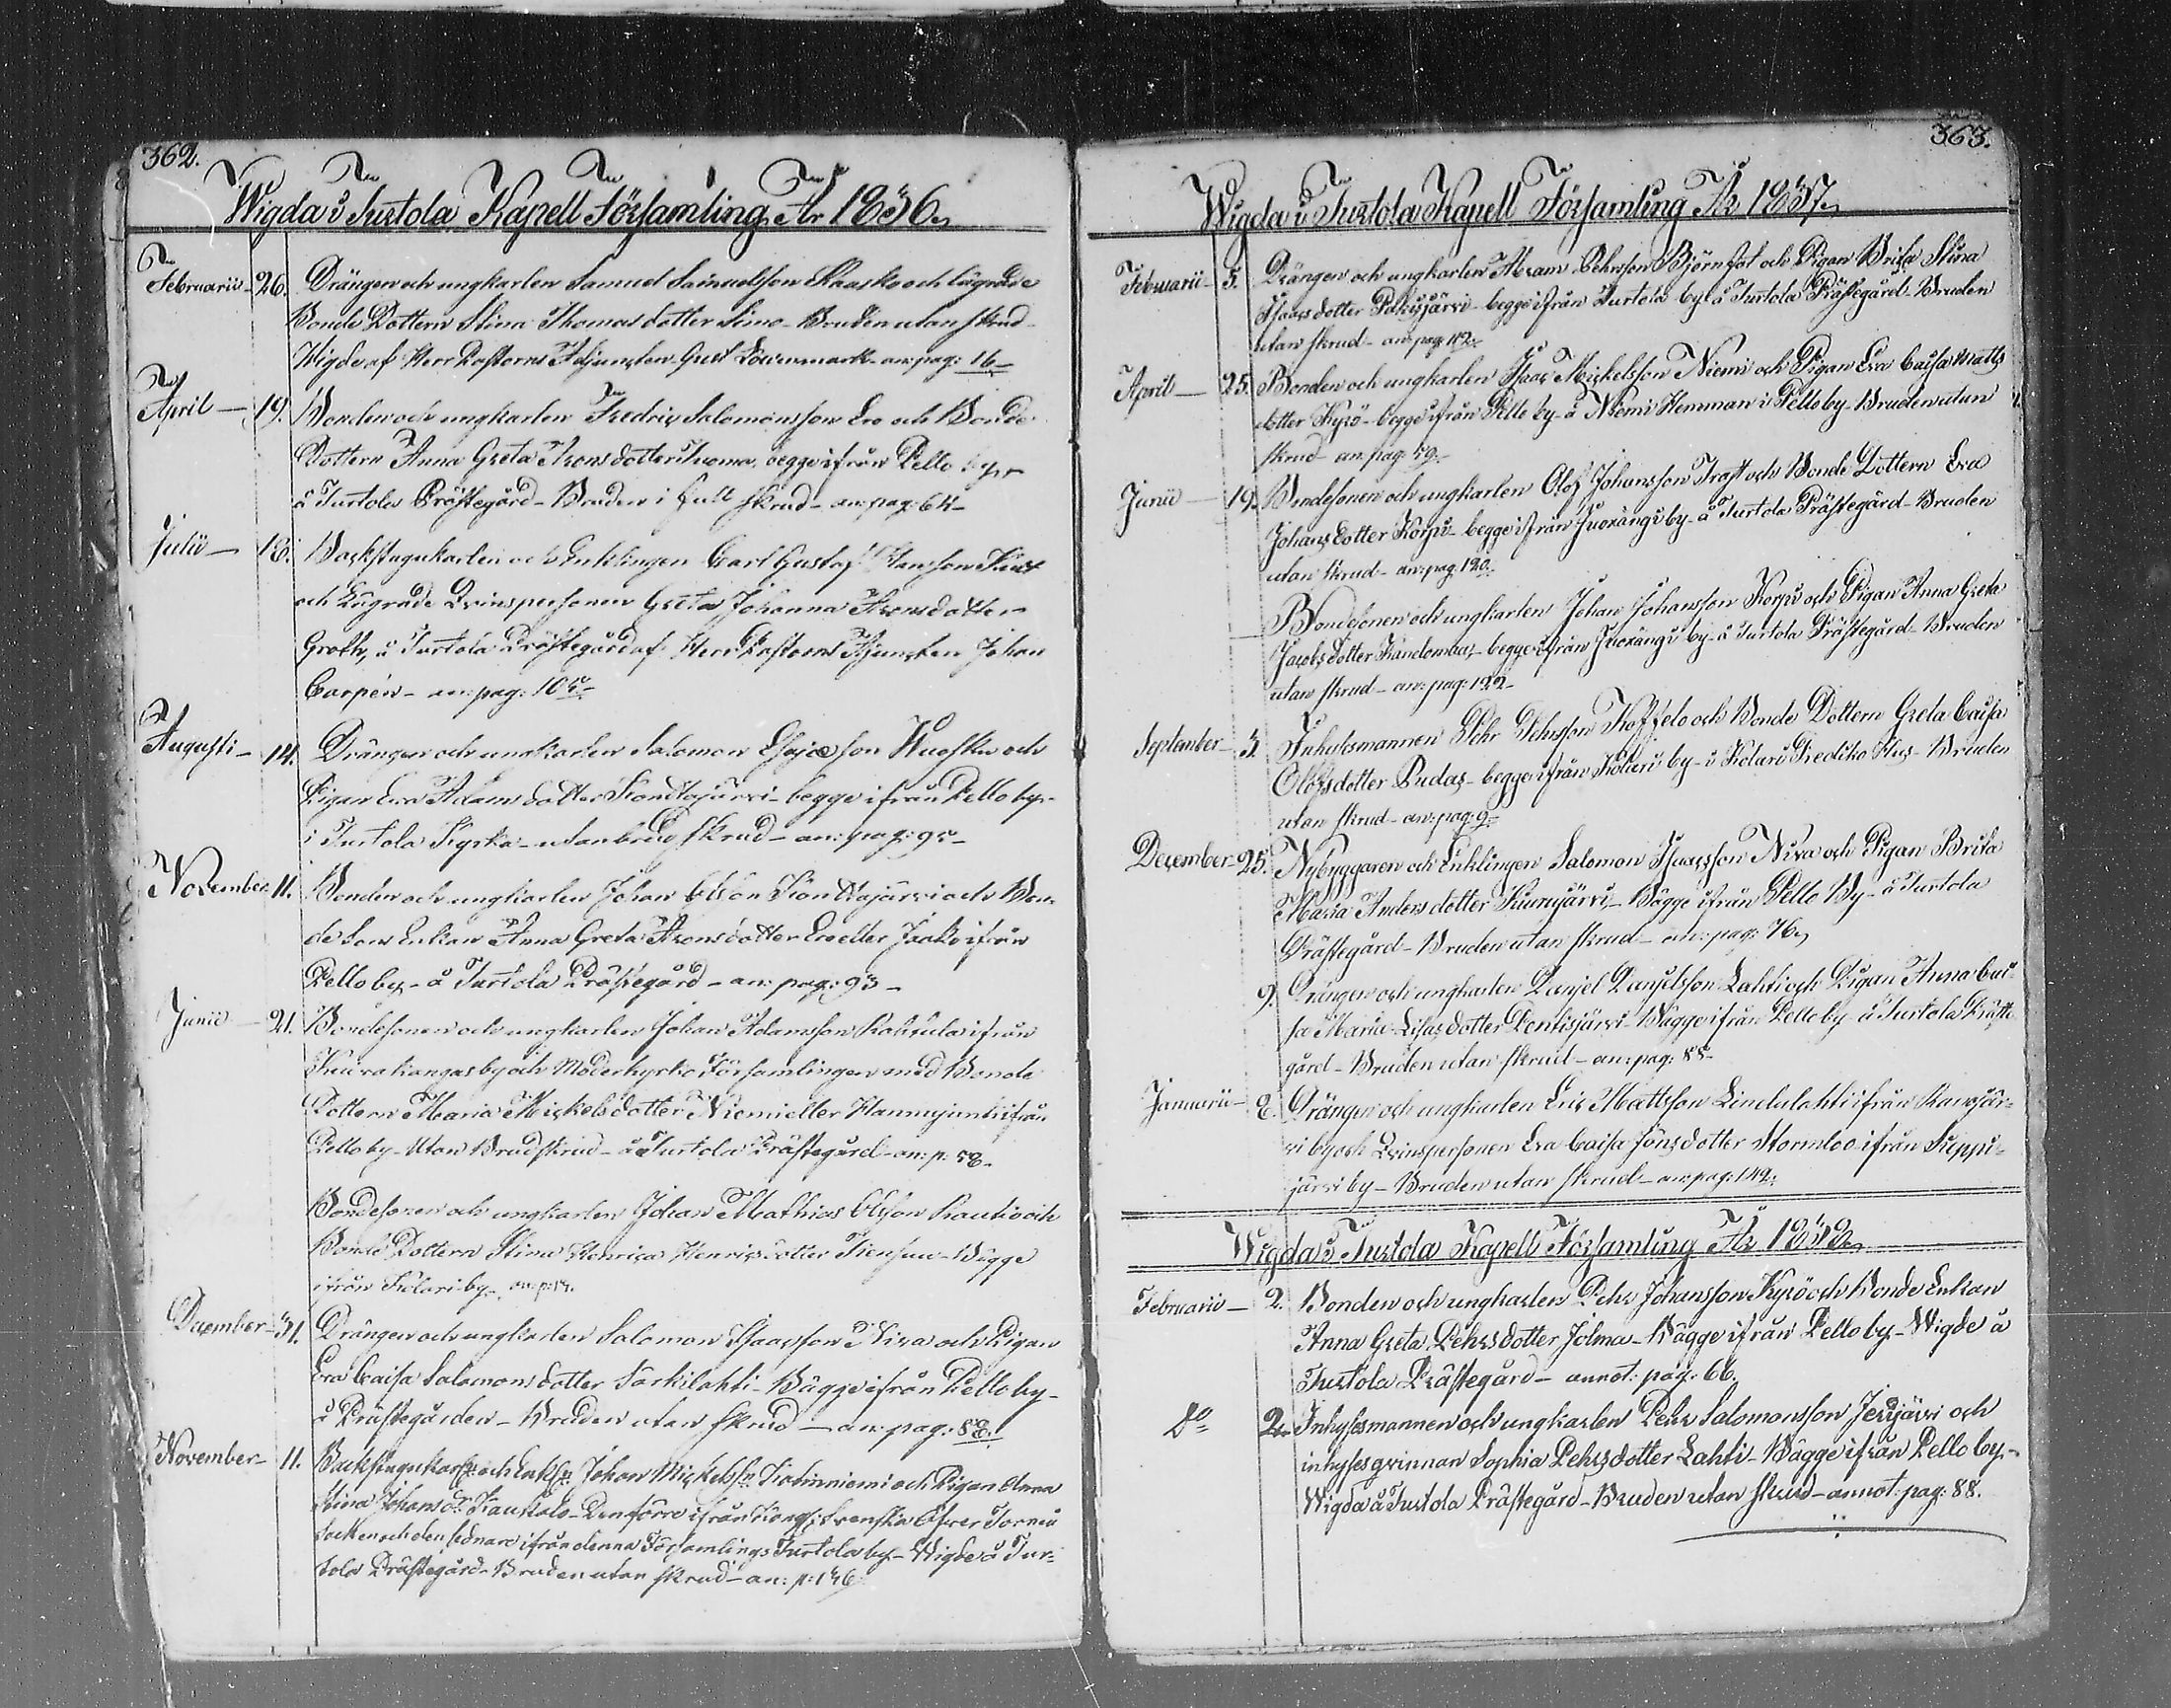 362.
Wigda i Turtola Kapell Församling År 1836.
Februarii - 26. Drängen och ungkarlen Samuel Samuelsson Raasko och lägrade
Bonde Dottern Stina Thomas dotter Simo - Bruden utan skrud -
Wigde af Herr Pastorns Adjuncten Gust Löwenmark - an: pag: 16 -
April - 19. Bonden och ungkarlen Fredric Salomonsson Ero och Bonde
Dottern Anna Greta Aronsdotter Tuoma, begge ifrån Pello by -
å Turtola Prästegård - Bruden i full skrud - an: pag: 64 -
Julii - 18. Backstugukarlen och Enklingen Carl Gustaf
och Lägrade Qvinspersonen Greta Johanna Aronsdotter
Groth, å Turtola Prästegård af Herr Pastorns Adjuncten Johan
Carpén - an: pag: 105 -
Augusti - 14. Drängen och ungkarlen Salomon Esajæ son Wuosku och
Pigan Eva Adamsdotter Konttajärvi - begge ifrån Pello by -
i Turtola Kyrka - utan brudskrud - an: pag: 95 -
November 11. Bonden och ungkarlen Johan Olsson Konttajärvi och Bon-
de Sons Enkan Anna Greta Aronsdotter Ero eller Jaako ifrån
Pello by - å Turtola Prästegård - an: pag: 93 -
Junii - 21. Bondesonen och ungkarlen Johan Adamsson ifrån
Kuivakangas by och Moderkyrko Församlingen med Bonde
Dottern Maria Mickelsdotter Niemi eller Hannujunti ifrån
Pello by - Utan Brudskrud - å Turtola Prästegård - an: p: 58 -
Bondesonen och ungkarlen Johan Mathias Olsson Rautio och
Bonde Dottern Stina Henrica Henricsdotter Kiensuu - Bägge
ifrån Kolari by - an: p: 14.
December - 31. Drängen och ungkarlen Salomon Isaacsson Niva och Pigan
Eva Caisa Salomonsdotter Särkilahti - Bägge ifrån Pello by -
å Prästegården - Bruden utan skrud - an: pag: 88.
November - 11. Backstugukarl: och Enkl: Johan Mickelss: Kohinniemi och Pigan Anna
Stina Johansdr Kaukolo - Den förre ifrån Kongl: Svenska Öfver Torneå
Socken och den sednare ifrån denna Församlings Turtola by - Wigde å Tur-
tola Prästegård - Bruden utan skrud - an: p: 146
363.
Wigda i Turtola Kapell Församling År 1837.
Februarii - 5. Drängen och ungkarlen Abram Pehrsson Björnfot och Pigan Brita Stina
Isaacs dotter Pakisjärvi - begge ifrån Turtola by å Turtola Prästegård - Bruden
utan skrud - an: pag: 112 -
April - 25. Bonden och ungkarlen Isaac Mickelsson Niemi och Pigan Eva Caisa Matts
dotter Kyrö - begge ifrån Pello by - å Niemi Hemman i Pello by - Bruden utan
skrud - an: pag: 59 -
Junii - 19. Bondesonen och ungkarlen Olof Johansson Trast och Bonde Dottern Eva
Johans dotter Korpi - begge ifrån Juoxängi by - å Turtola Prästegård - Bruden
utan skrud - an: pag: 120.
Bondesonen och ungkarlen Johan Johansson Korpi och Pigan Anna Greta
Jacobsdotter Kandomaa - begge ifrån Juoxängi by - å Turtola Prästegård - Bruden
utan skrud - an: pag: 122 -
September - 3. Inhysesmannen Pehr Pehrsson Koffelo och Bonde Dottern Greta Caisa
Olofsdotter Pudas - begge ifrån Kolari by - i Kolari Prediko Hus - Bruden
utan skrud - an: pag: 9 -
December - 25. Nybyggaren och Enklingen Salomon Isaacsson Niva och Pigan Brita
Maria Anders dotter Kuurujärvi - Bägge ifrån Pello By - å Turtola
Prästegård - Bruden utan skrud - an: pag: 76.
9. Drängen och ungkarlen Danjel Danjelsson Lahti och Pigan Anna Cai-
sa Maria Lisas dotter Pentisjärvi - Bägge ifrån Pello by - å Turtola Präste-
gård - Bruden utan skrud - an: pag: 88 -
Januarii - 8. Drängen och ungkarlen Eric Mattsson Lindulahti ifrån Ranojär-
vi by och Qvinspersonen Eva Caisa Jönsdotter Stormloo ifrån Sieppi-
järvi by - Bruden utan skrud - an: pag: 142.
Wigda i Turtola Kapell Församling År 1838.
Februarii - 2. Bonden och ungkarlen Pehr Johansson Kyrö och Bonde Enkan
Anna Greta Pehrsdotter Jolma - Bägge ifrån Pello by - Wigde å
Turtola Prästegård - annot: pag: 66.
Do 2. Inhysesmannen och ungkarlen Pehr Salomonsson Jerijärvi och
inhysesqvinnan Sophia Pehrsdotter Lahti - Bägge ifrån Pello by -
Wigda å Turtola Prästegård - Bruden utan skrud - annot: pag: 88.